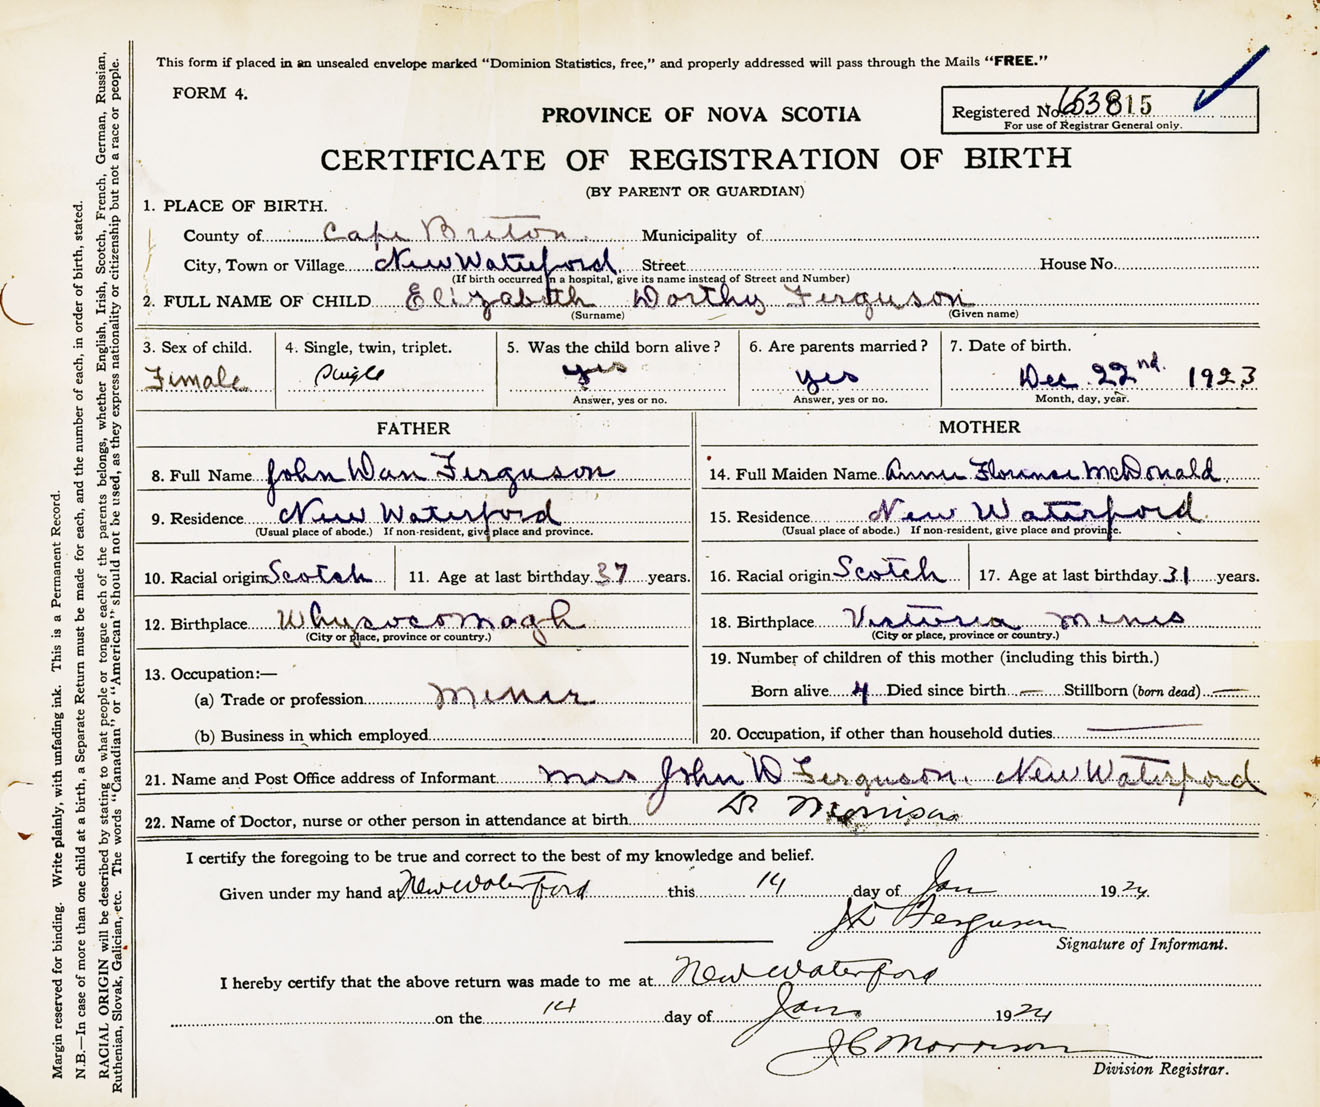 This form if placed in an unsealed envelope marked "Dominion Statistics, free," and properly addressed will pass through the Mails "FREE."
FORM 4.
PROVINCE OF NOVA SCOTIA
Registered No. 653815
For use of Registrar General only.
CERTIFICATE OF REGISTRATION OF BIRTH
(BY PARENT OR GUARDIAN)
1. PLACE OF BIRTH.
County of Cape Breton Municipality of
City, Town or Village New Waterford Street House No.
(If birth occurred in a hospital, give its name instead of Street and Number)
2. FULL NAME OF CHILD Elizabeth Dorthy Ferguson
(Surname) (Given name)
3. Sex of child. 4. Single, twin, triplet. 5. Was the child born alive? 6. Are parents married? 7. Date of birth.
Female Single yes yes Dec 22nd. 1923
Answer, yes or no. Answer, yes or no. Month, day, year.
FATHER MOTHER
8. Full Name John Dan Ferguson 14. Full Maiden Name Annie Florence McDonald
9. Residence New Waterford 15. Residence New Waterford
(Usual place of abode.) If non-resident, give place and province. (Usual place of abode.) If non-resident, give place and province.
10. Racial origin Scotch 11. Age at last birthday 37 years. 16. Racial origin Scotch 17. Age at last birthday 31 years.
12. Birthplace Whycocomagh 18. Birthplace Victoria Mines
(City or place, province or country.) (City or place, province or country.)
13. Occupation:— 19. Number of children of this mother (including this birth.)
(a) Trade or profession Miner Born alive 4 Died since birth — Stillborn (born dead) —
(b) Business in which employed 20. Occupation, if other than household duties
21. Name and Post Office address of Informant Mrs John D Ferguson. New Waterford
22. Name of Doctor, nurse or other person in attendance at birth Dr Morrison
I certify the foregoing to be true and correct to the best of my knowledge and belief.
Given under my hand at New Waterford this 14 day of Jan 1924
Ferguson
Signature of Informant.
I hereby certify that the above return was made to me at New Waterford
on the 14 day of Jan 1924
J C Morrison
Division Registrar.
Margin reserved for binding. Write plainly, with unfading ink. This is a Permanent Record.
N.B.—In case of more than one child at a birth, a Separate Return must be made for each, and the number of each, in order of birth, stated.
RACIAL ORIGIN will be described by stating to what people or tongue each of the parents belongs, whether English, Irish, Scotch, French, German, Russian,
Ruthenian, Slovak, Galician, etc. The words "Canadian" or "American" should not be used, as they express nationality or citizenship but not a race or people.